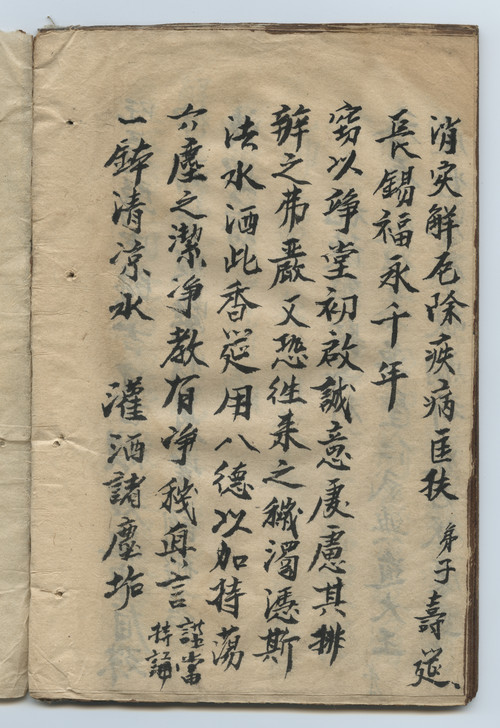 消灾解厄除疾病匡扶弟子壽筵
長錫福永千年
窃以竫堂初啟誠意虔慮其排
辦之弗嚴又恐徃来之穢濁憑斯
法水洒此香筵用八德以加持蕩
六塵之潔净教有净穢真言謹當持誦
一鉢清凉水 灌洒諸塵垢